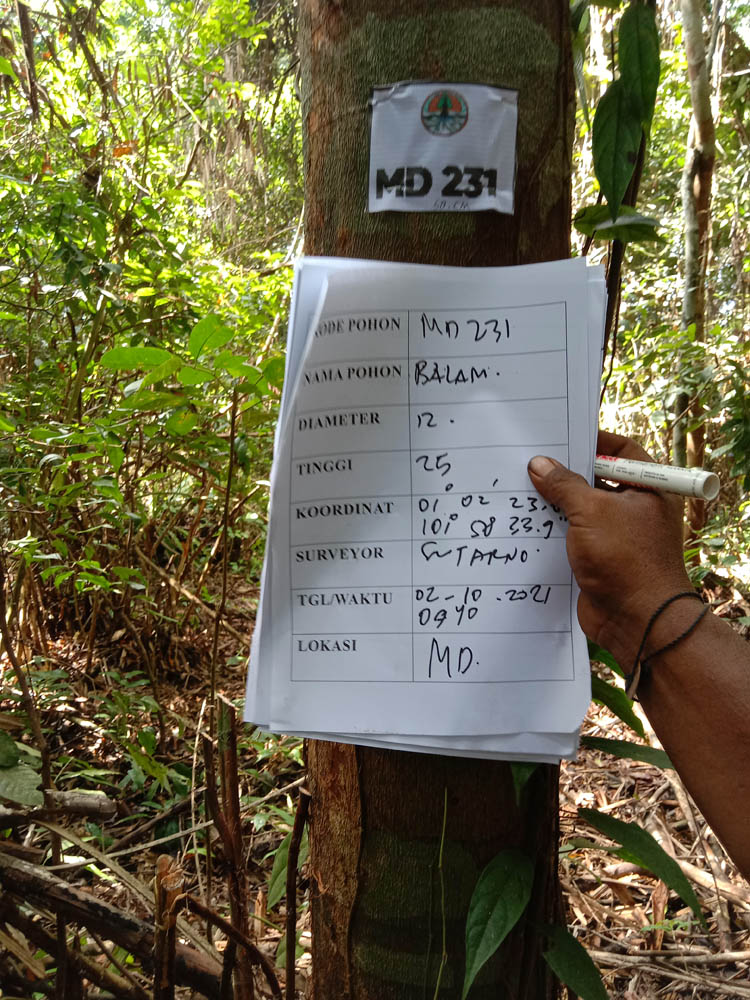 MD 231
50 cm
KODE POHON MD 231
NAMA POHON BALAM.
DIAMETER 12.
TINGGI 25
KOORDINAT 01° 02' 23.
101° 58 33.9"
SURVEYOR SUTARNO.
TGL/WAKTU 02-10.2021
0940
LOKASI MD.